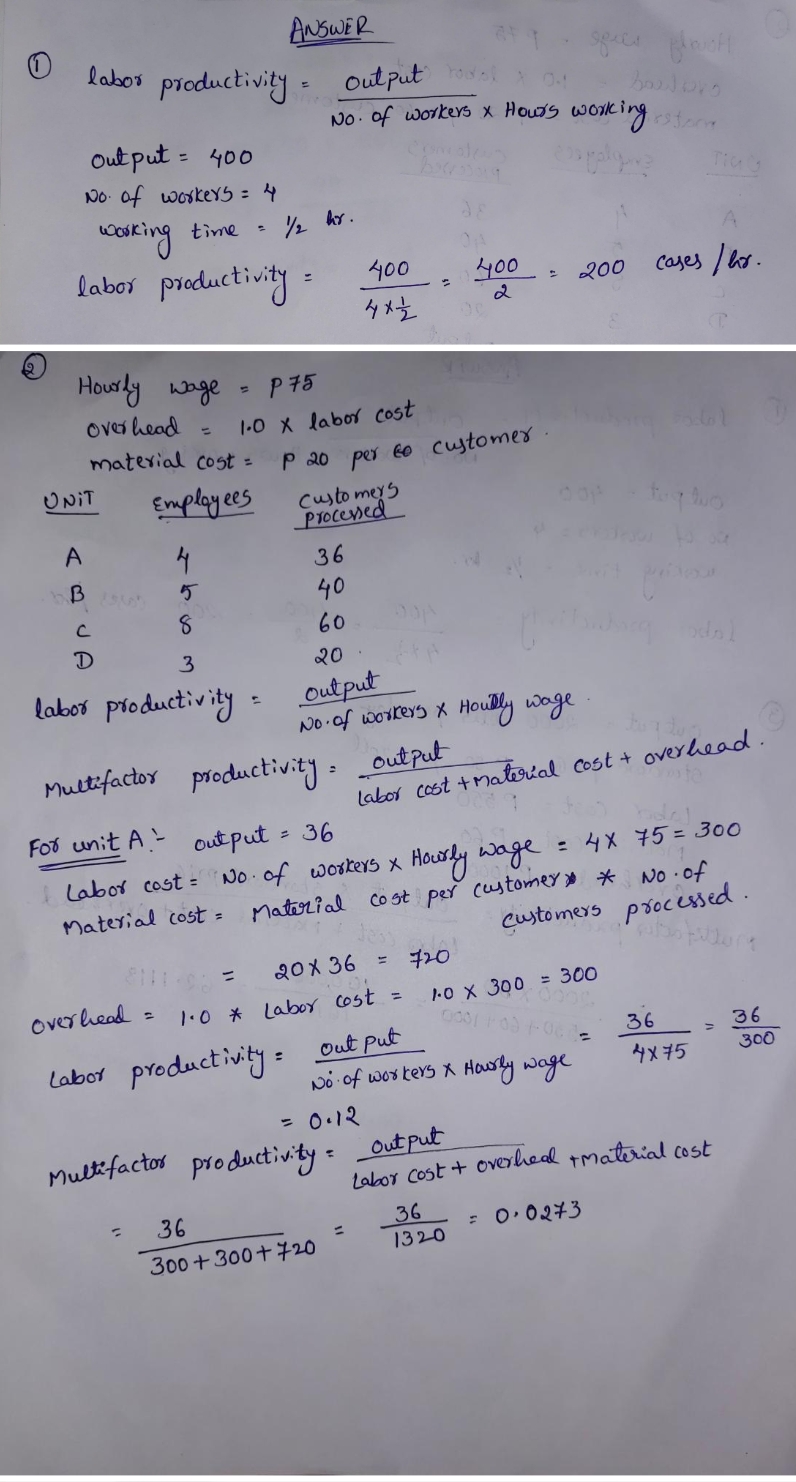 ANSWER
① labor productivity = output / No. of workers x Hours working
output = 400
No. of workers = 4
working time = 1/2 hr.
labor productivity = 400 / 4 x 1/2 = 400 / 2 = 200 cases / hr.
② Hourly wage = P 75
overhead = 1.0 x labor cost
material cost = P 20 per customer.
UNIT Employees customers processed
A 4 36
B 5 40
C 8 60
D 3 20
labor productivity = output / No. of workers x Hourly wage.
Multifactor productivity = output / labor cost + material cost + overhead.
For unit A :- output = 36
Labor cost = No. of workers x Hourly wage = 4 x 75 = 300
Material cost = Material cost per customer * No. of customers processed.
= 20 x 36 = 720
overhead = 1.0 * Labor cost = 1.0 x 300 = 300
Labor productivity = output / No. of workers x Hourly wage = 36 / 4x75 = 36 / 300
= 0.12
Multifactor productivity = output / Labor cost + overhead + material cost
= 36 / 300 + 300 + 720 = 36 / 1320 = 0.0273